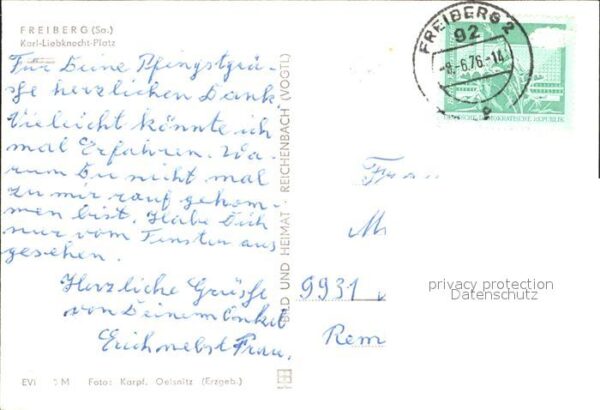 FREIBERG (Sa.)
Karl-Liebknecht-Platz
Für Deine Pfingstgrü-
sse herzlichen Dank.
Vieleicht könnte ich
mal Erfahren. Wa-
rum Du nicht mal
zu mir rauf gekom-
men bist. Habe Dich
nur vom Fenster aus
gesehen.
Herzliche Grüsse
von Deinem Onkel
Erich nebst Frau.
EVi M Foto: Karpf, Oelsnitz (Erzgeb.)
BILD UND HEIMAT REICHENBACH (VOGTL)
FREIBERG 2
92
-8.-6.76.-14
DEMOKRATISCHE REPUBLIK
Frau
M
9931
Rem
privacy protection
Datenschutz